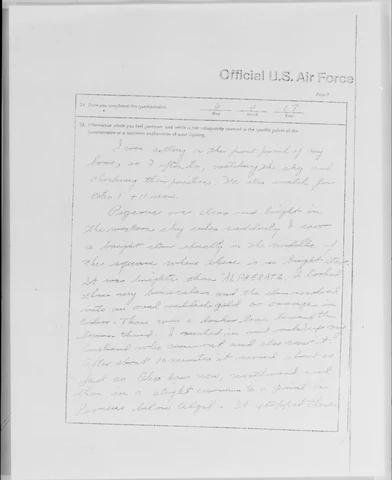 Official U.S. Air Force
Page 7
34. Date you completed this questionnaire:
Day Month Year
35. Information which you feel pertinent and which is not adequately covered in the specific points of the
questionnaire or a narrative explanation of your sighting.
I was sitting in the front porch of my
home, as I often do, watching the sky and
checking star positions. We also watch for
Echo I + II now.
Pegasus was clear and bright in
the eastern sky when suddenly I saw
a bright star exactly in the middle of
the square where there is no bright star.
It was brighter than ALPHERATZ. I looked
thru my binoculars and the star resolved
into an oval reddish gold or orange in
color. There was a darker
I rushed in and woke up my
husband who came out and also saw it.
After about 10 minutes it moved about as
fast as Echo does now, northward and
then in a slight curve to a point in
Perseus below Algol. It stopped there